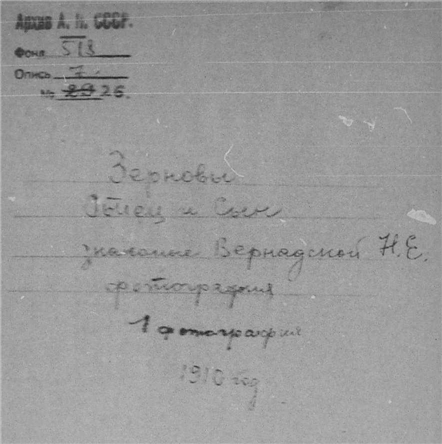 Архив А. Н. СССР.
Фонд 518
Опись 7
№ 29 26.
Зерновы
Отец и Сын
знакомые Вернадской Н.Е.
фотография
1 фотография
1910 год